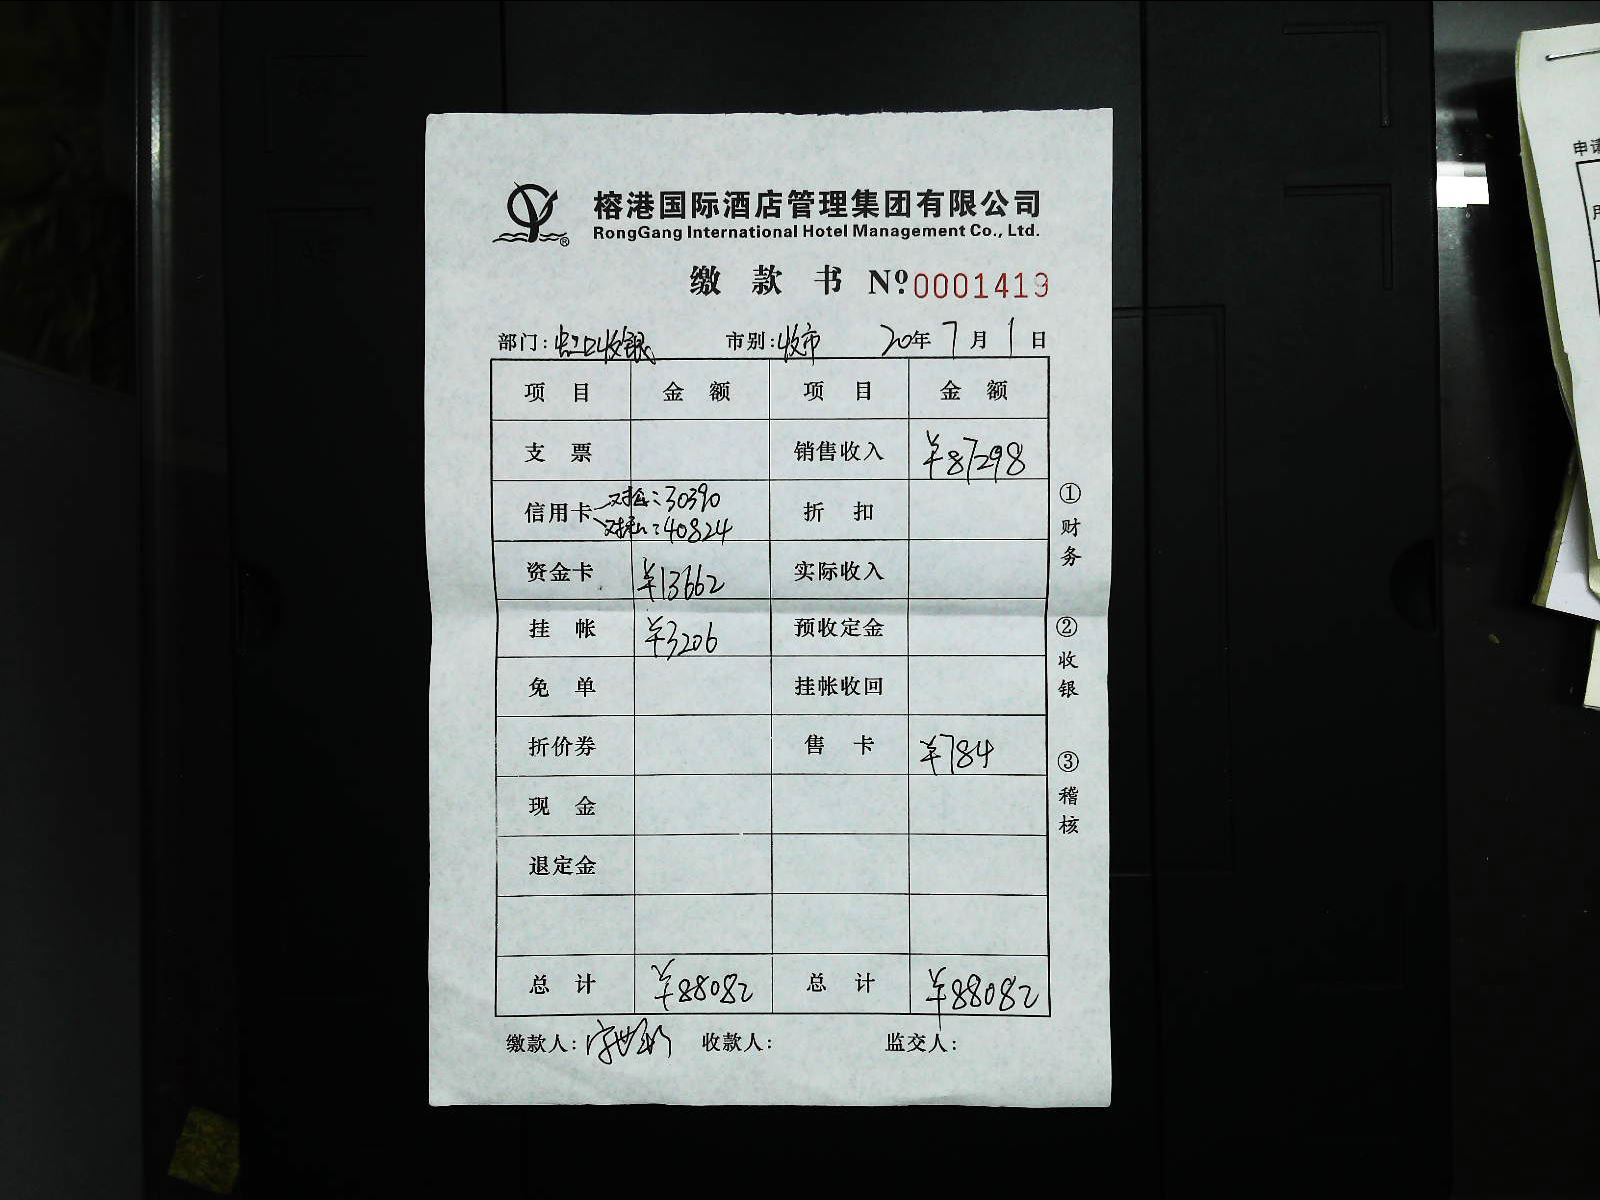 榕港国际酒店管理集团有限公司
RongGang International Hotel Management Co., Ltd.
缴 款 书 Nº 0001419
部门: 虹口收银 市别: 收市 20年 7月 1日
项 目 金 额 项 目 金 额
支 票 销售收入 ¥87298
信用卡 : 30390
: 40824 折 扣
资金卡 ¥13662 实际收入
挂 帐 ¥3206 预收定金
免 单 挂帐收回
折价券 售 卡 ¥784
现 金
退定金
总 计 ¥88082 总 计 ¥88082
缴款人: 收款人: 监交人:
①财务
②收银
③稽核
申请